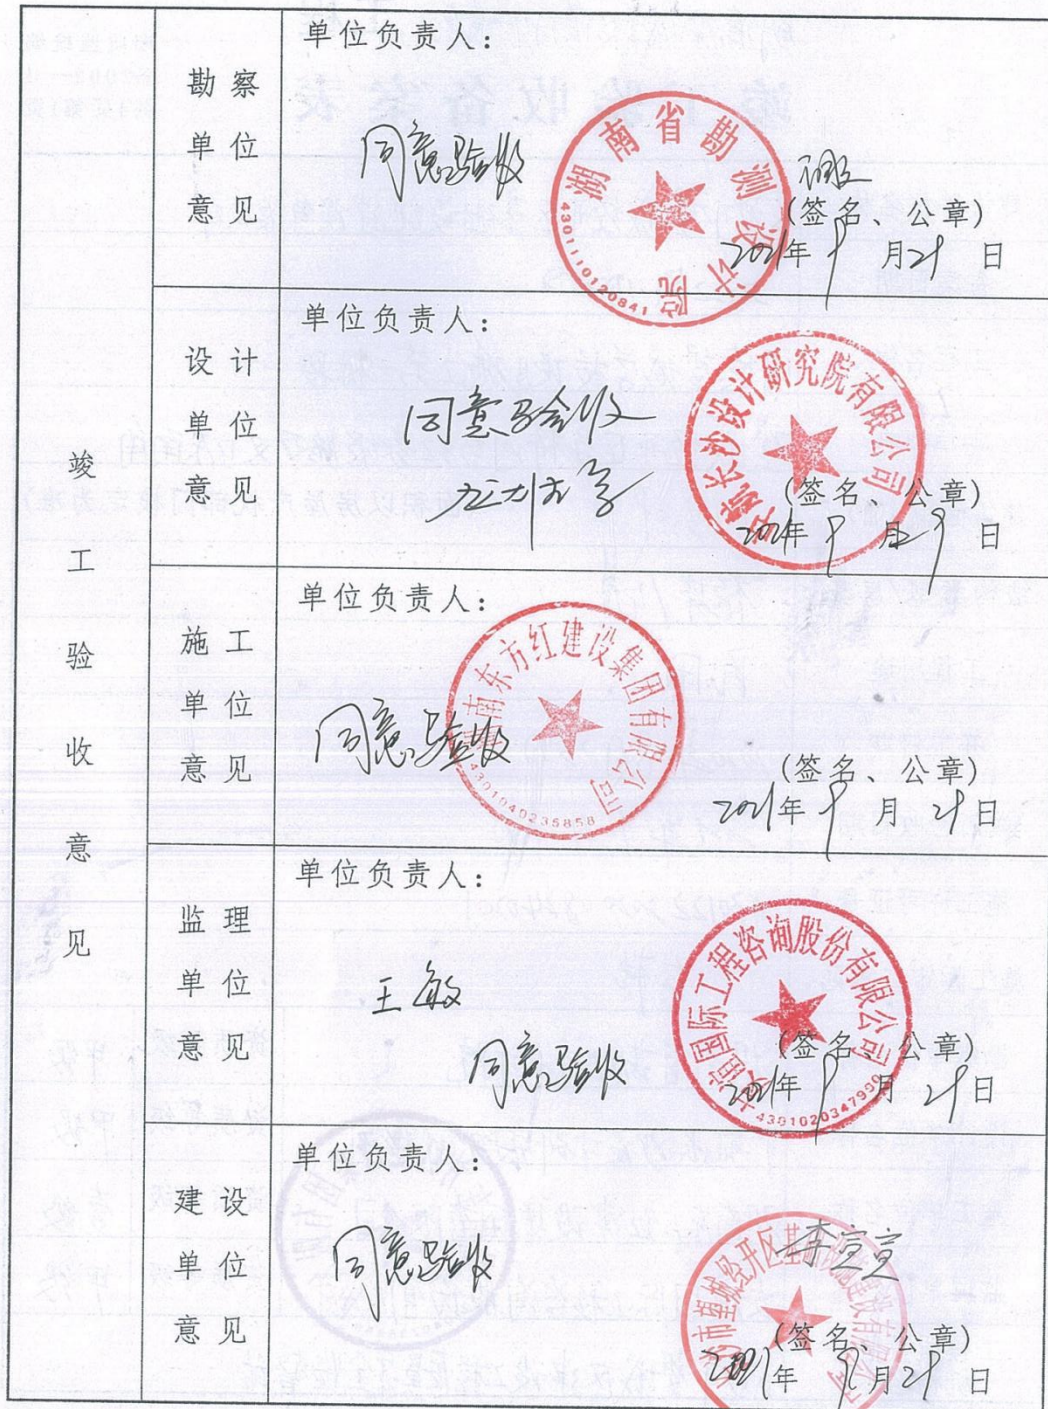 竣工验收意见
勘察单位意见
单位负责人：
同意验收
湖南省勘测设计院
43011110120841
(签名、公章)
2021年9月29日
设计单位意见
单位负责人：
同意验收
长沙设计研究院有限公司
(签名、公章)
2021年9月29日
施工单位意见
单位负责人：
同意验收
湖南东方红建设集团有限公司
4301040235858
(签名、公章)
2021年9月29日
监理单位意见
单位负责人：
王敏
同意验收
友谊国际工程咨询股份有限公司
4301020347950
(签名、公章)
2021年9月29日
建设单位意见
单位负责人：
同意验收
李宣宣
市望城经开区基础设施建设有限公
(签名、公章)
2021年9月29日